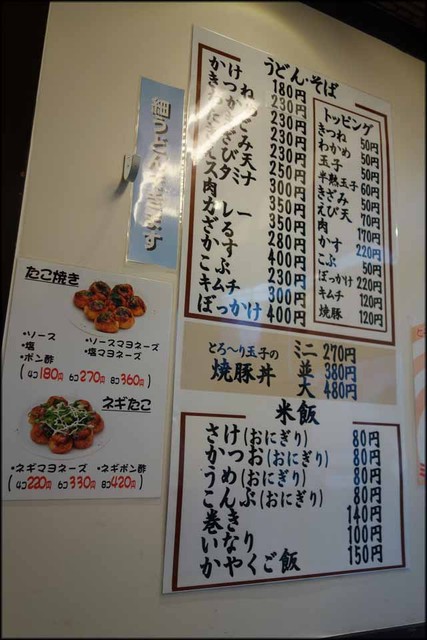 うどん・そば
かけ 180円
きつね 230円
230円
230円
きざみ 230円
えび天 250円
スタミナ 300円
肉 300円
カレー 350円
ざる 280円
かす 400円
こぶ 230円
キムチ 300円
ぼっかけ 400円
トッピング
きつね 50円
わかめ 50円
玉子 50円
半熟玉子 60円
きざみ 50円
えび天 70円
肉 170円
かす 220円
こぶ 50円
ぼっかけ 220円
キムチ 120円
焼豚 120円
とろ〜り玉子の
焼豚丼
ミニ 270円
並 380円
大 480円
米飯
さけ(おにぎり) 80円
かつお(おにぎり) 80円
うめ(おにぎり) 80円
こんぶ(おにぎり) 80円
巻き 140円
いなり 100円
かやくご飯 150円
細うどん
ます
たこ焼き
・ソース ・ソースマヨネーズ
・塩 ・塩マヨネーズ
・ポン酢
(4コ180円 6コ270円 8コ360円)
ネギたこ
・ネギマヨネーズ ・ネギポン酢
(4コ220円 6コ330円 8コ420円)